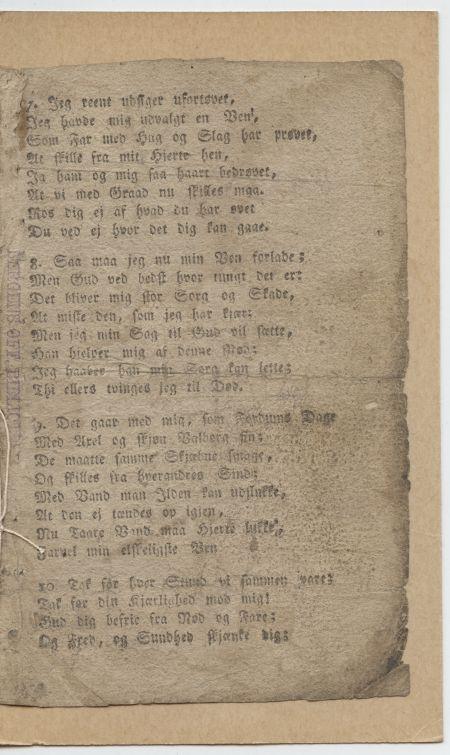 7. Jeg reent udsiger ufortøvet,
Jeg havde mig udvalgt en Ven,
Som Far med Hug og Slag har prøvet,
At skille fra mit Hjerte hen,
Ja ham og mig saa haart bedrøvet,
At vi med Graad nu skilles maa.
Ros dig ej af hvad du har øvet
Du ved ej hvor det dig kan gaae.
8. Saa maa jeg nu min Ven forlade;
Men Gud ved bedst hvor tungt det er:
Det bliver mig stor Sorg og Skade,
At miste den, som jeg har kjær:
Men jeg min Sag til Gud vil sætte,
Han hjelper mig af denne Nød;
Jeg haaber han min Sorg kan lette;
Thi ellers tvinges jeg til Død.
9. Det gaar med mig, som Fordums Dage
Med Axel og skjøn Valborg fin;
De maatte samme Skjæbne smage,
Og skilles fra hverandres Sind;
Med Vand man Ilden kan udslukke,
At den ej tændes op igjen,
Nu Taare Vand maa Hjerte lukke,
Farvel min elskeligste Ven
10. Tak for hver Stund vi sammen vare;
Tak for din Kjærlighed mod mig!
Gud dig befrie fra Nød og Fare;
Og Fred, og Sundhed skjænke dig;
BERGENS OFF. BIBLIOTHEK